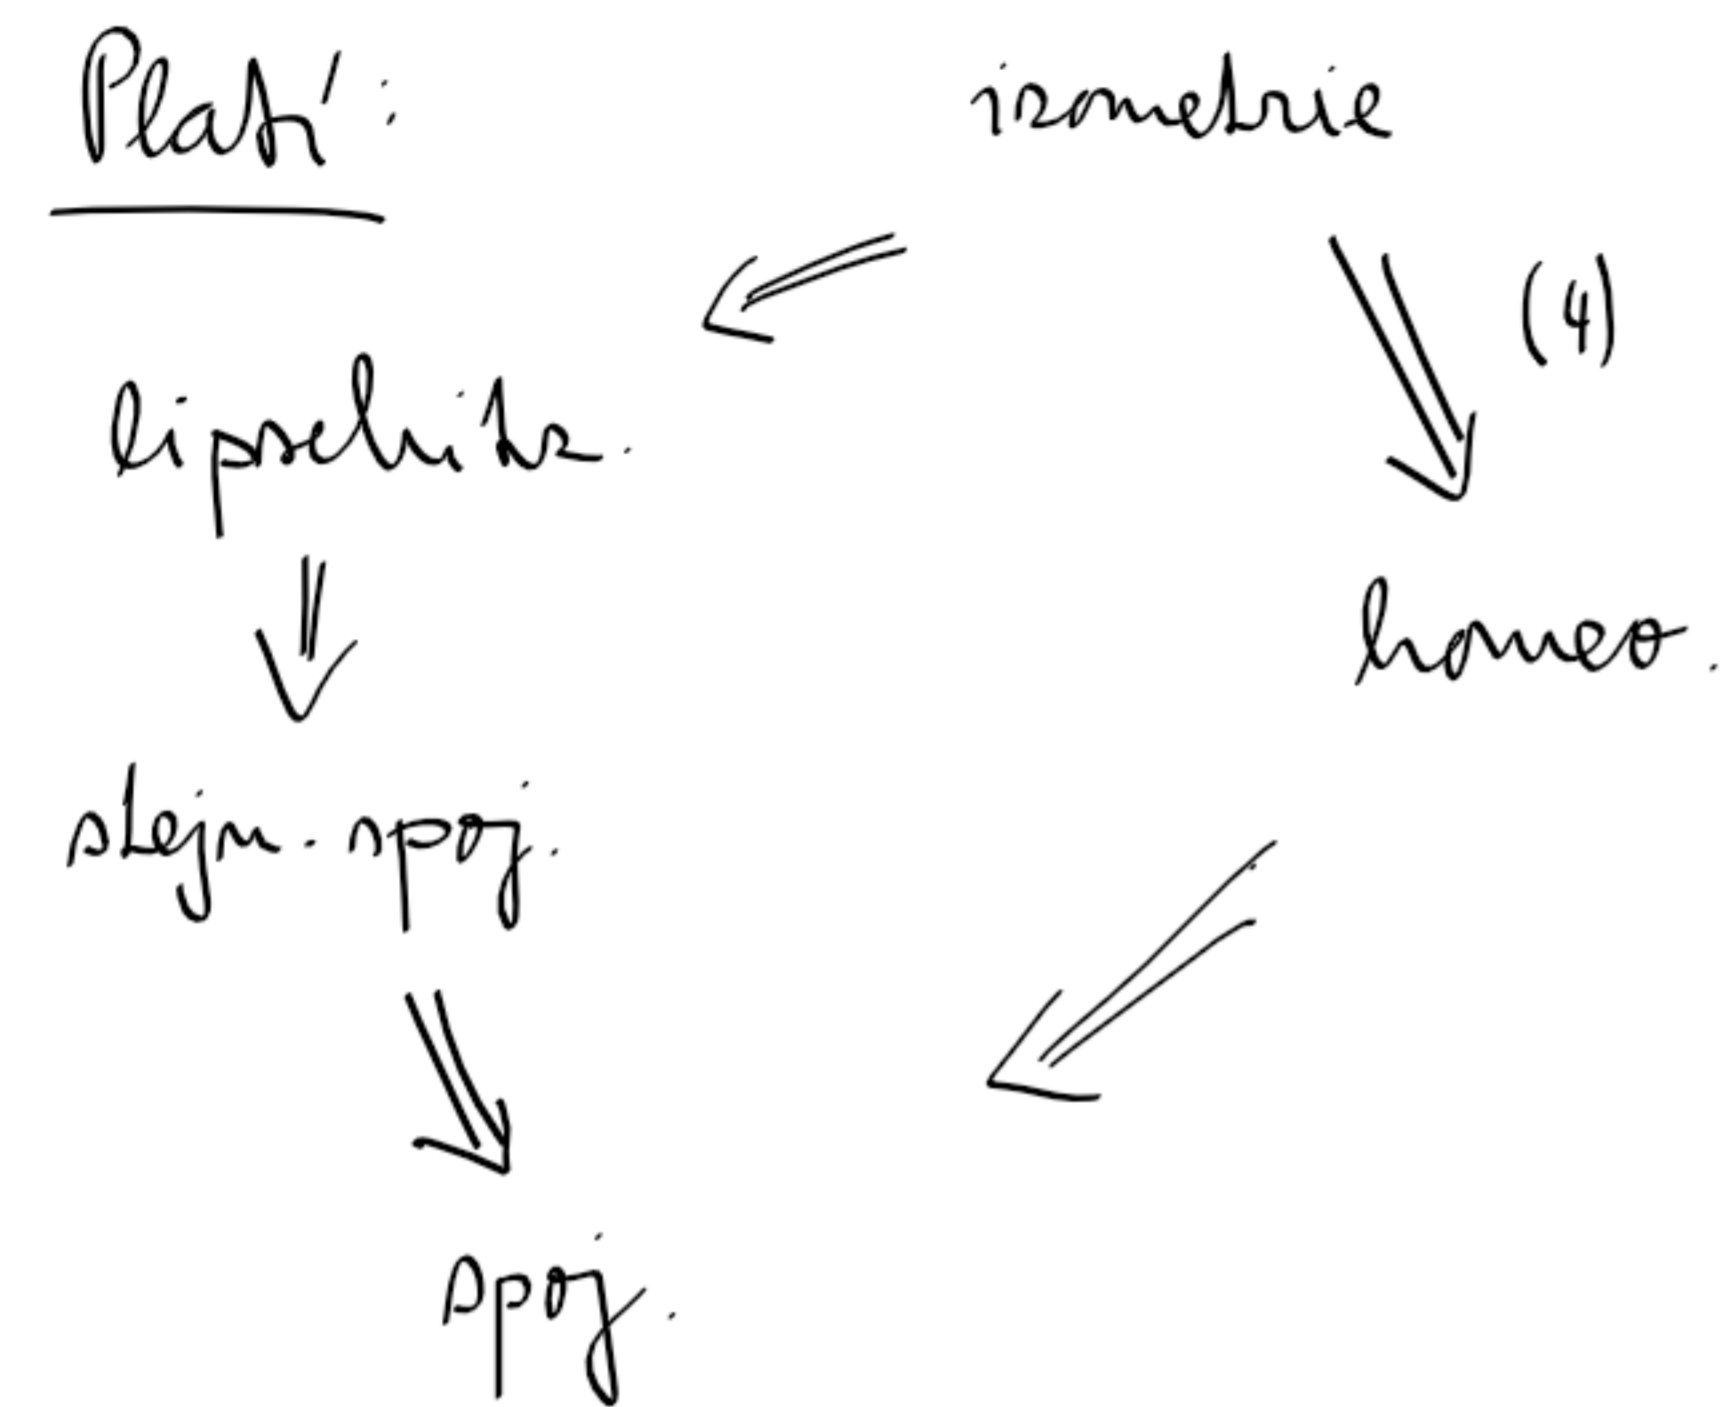 Platí:
izometrie
(4)
lipschitz.
homeo.
stejn. spoj.
spoj.